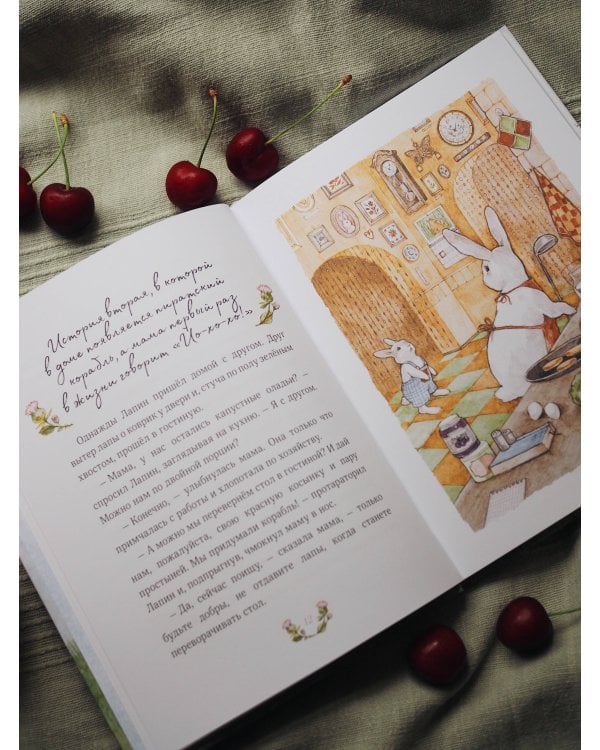 История вторая, в которой
в доме появляется пиратский
корабль, а мама первый раз
в жизни говорит «Йо-хо-хо!»
Однажды Лапин пришёл домой с другом. Друг
вытер лапы о коврик у двери и, стуча по полу зелёным
хвостом, прошёл в гостиную.
– Мама, у нас остались капустные оладьи? –
спросил Лапин, заглядывая на кухню. – Я с другом.
Можно нам по двойной порции?
– Конечно, – улыбнулась мама. Она только что
примчалась с работы и хлопотала по хозяйству.
– А можно мы перевернём стол в гостиной? И дай
нам, пожалуйста, свою красную косынку и пару
простыней. Мы придумали корабль! – протараторил
Лапин и, подпрыгнув, чмокнул маму в нос.
– Да, сейчас поищу, – сказала мама, – только
будьте добры, не отдавите лапы, когда станете
переворачивать стол.
12